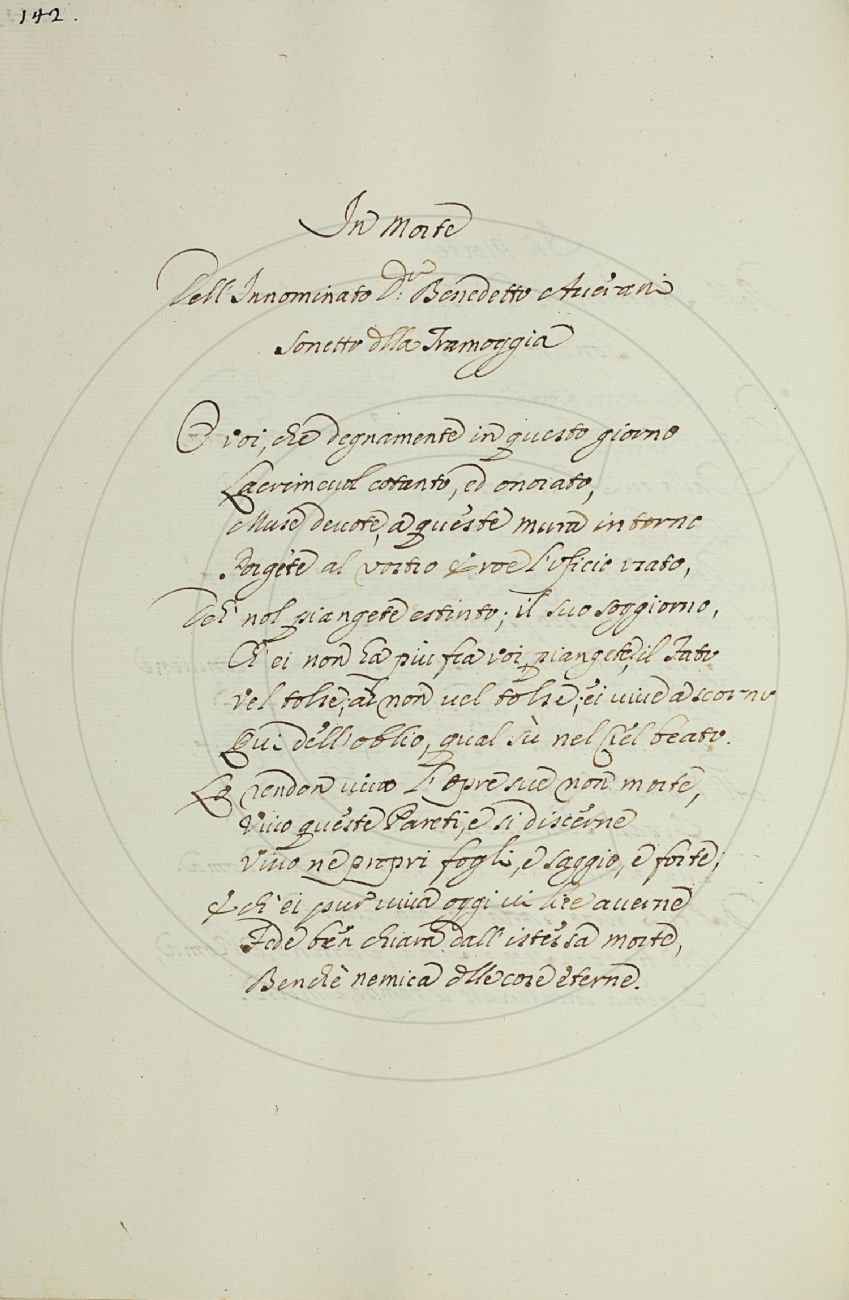 142.
In Morte
Dell' Innominato D.r Benedetto Averani
Sonetto dlla Tramoggia
O voi, che degnamente in questo giorno
Lacrimevol cotanto, ed onorato,
Muse devote, a queste mura intorno
Porgete al vostro Eroe l'oficio usato,
Deh' nol piangete estinto; il suo soggiorno,
Ch' ei non ha più fra voi, piangete; il Fato
Vel tolse; ah non vel tolse; ei vive a scorno
Qui dell' oblio, qual sù nel Ciel beato.
Lo rendon vivo l'opre sue non morte,
Vivo queste Pareti, e si discerne
Vivo ne propri fogli, e saggio, e forte;
E ch' ei pur viva oggi vi die averne
Fede ben chiara dall' istessa morte,
Benchè nemica dlle cose eterne.